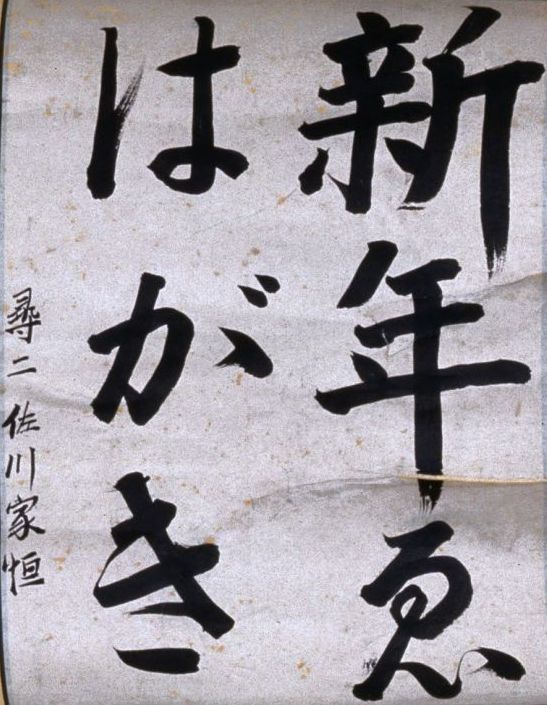 新年ゑ
はがき
尋二 佐川家恒